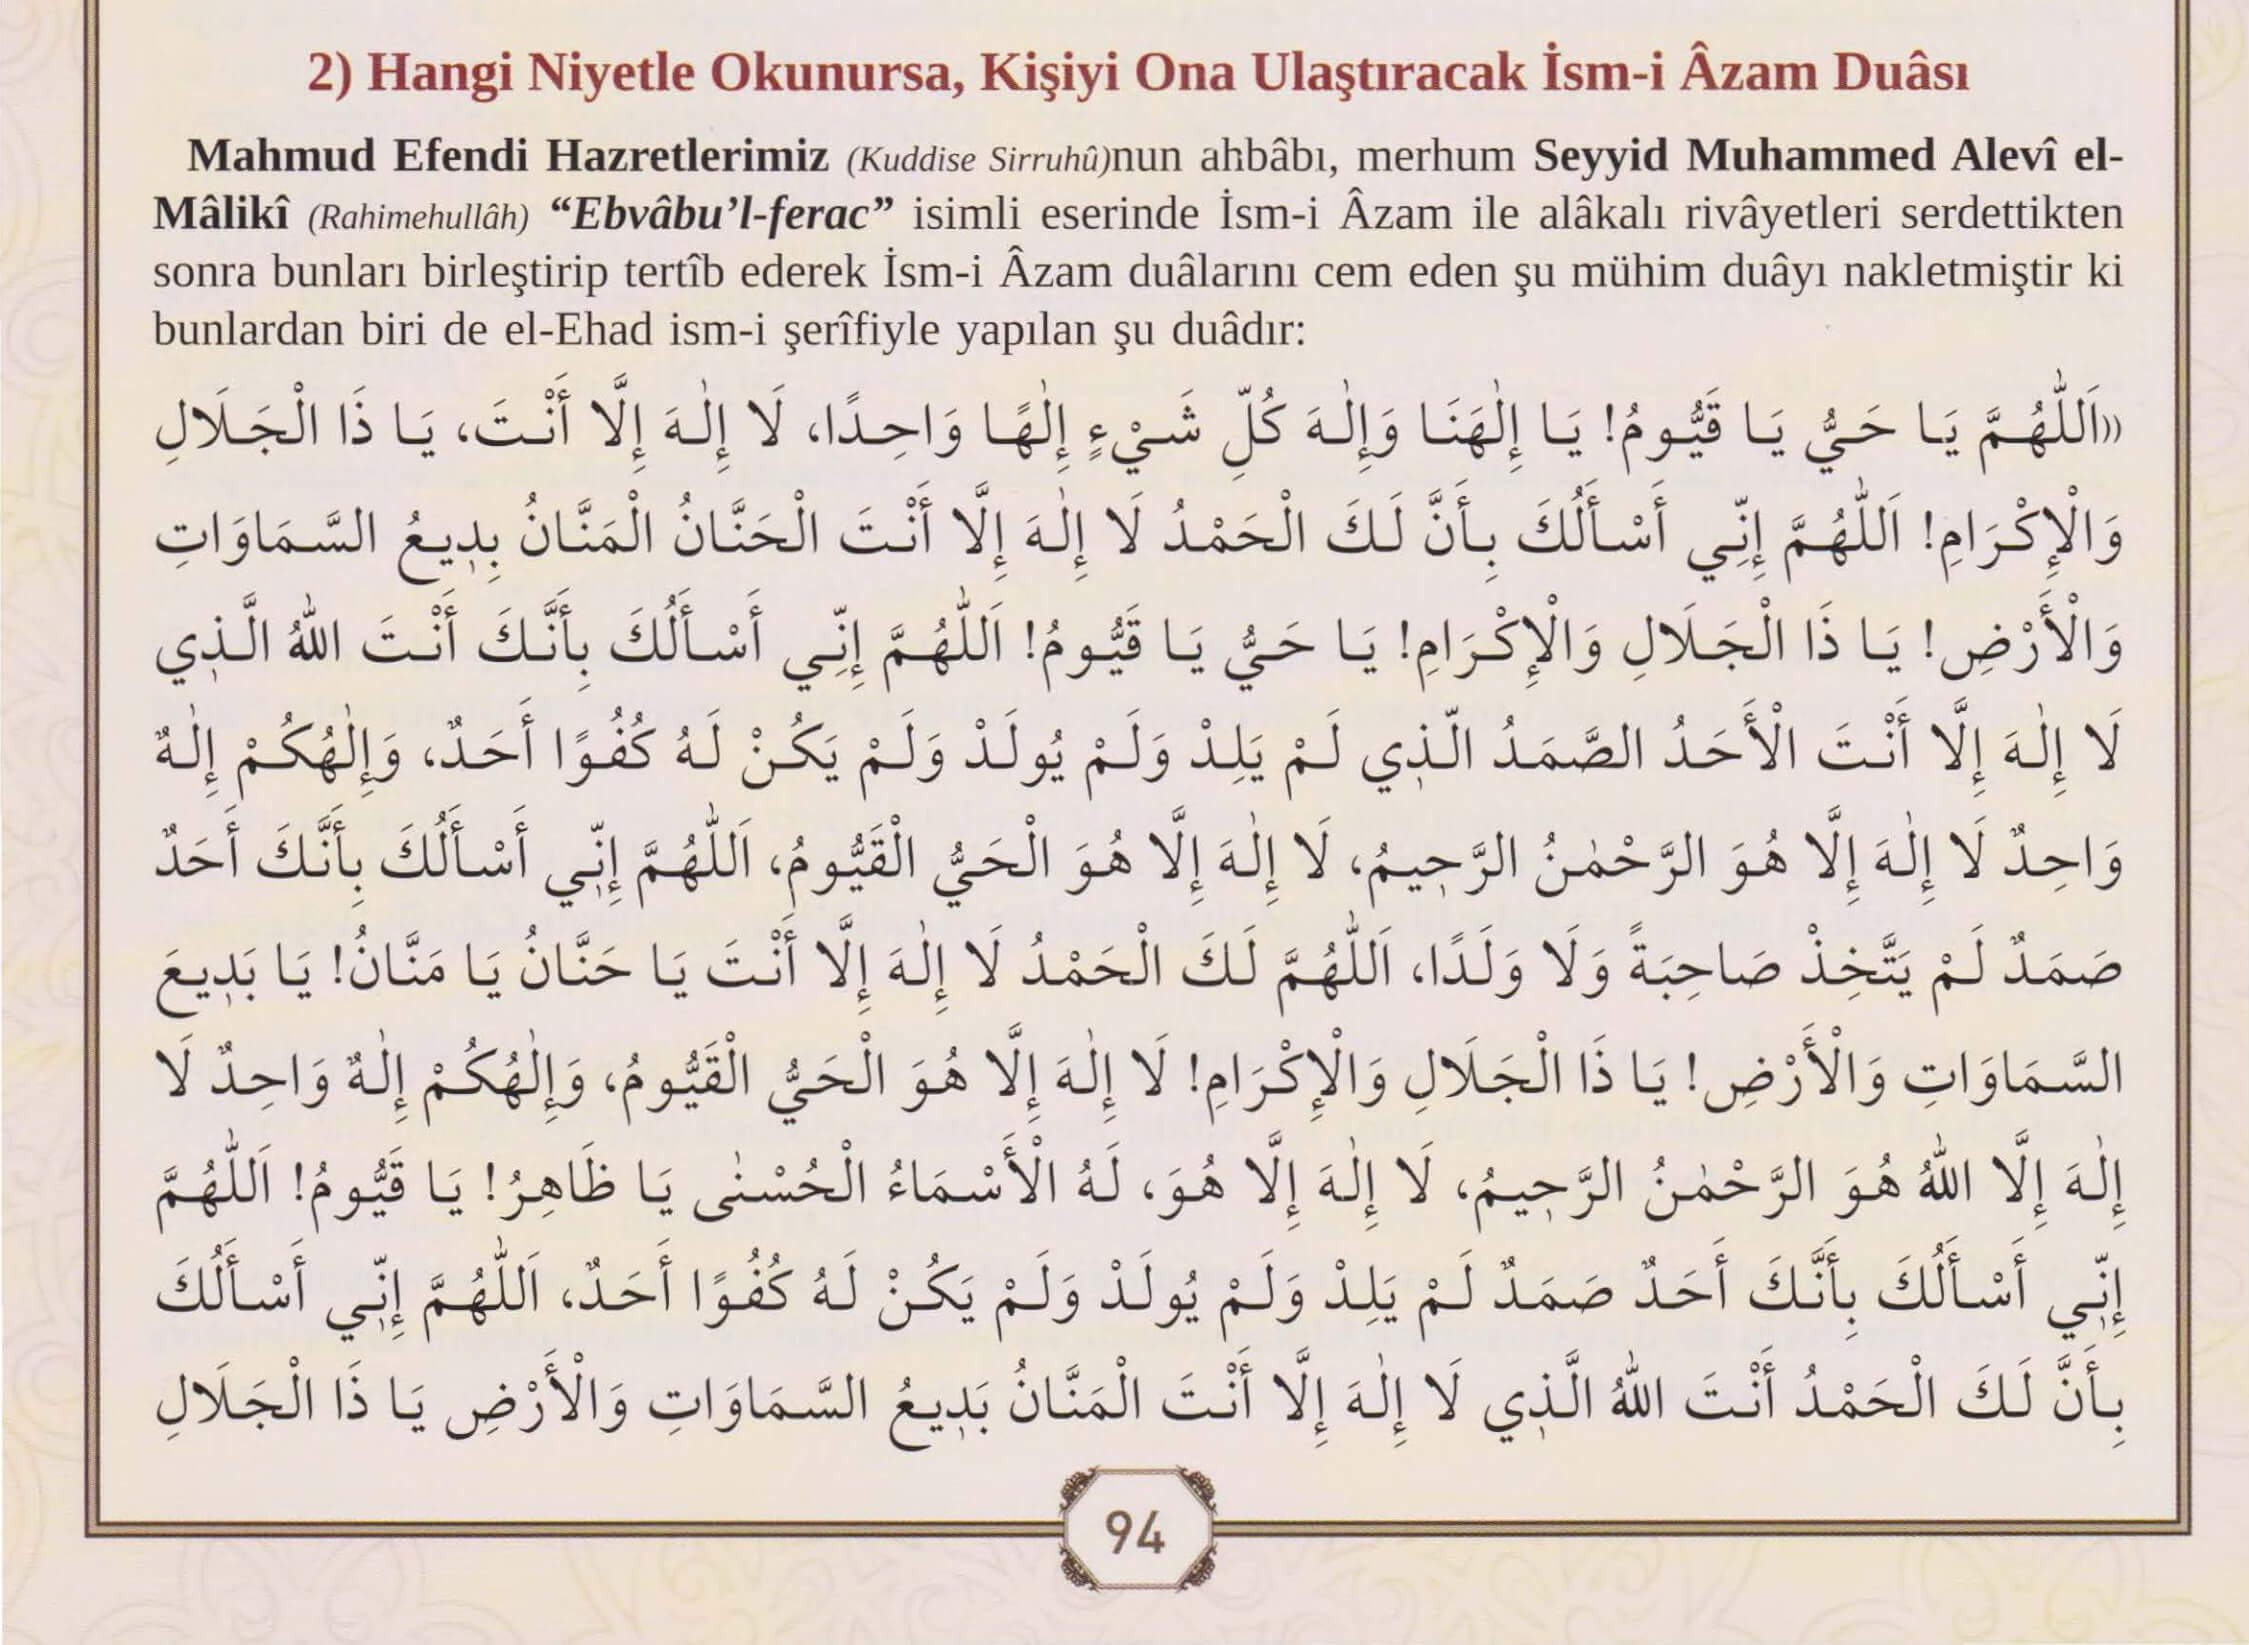 2) Hangi Niyetle Okunursa, Kişiyi Ona Ulaştıracak İsm-i Âzam Duâsı
Mahmud Efendi Hazretlerimiz (Kuddise Sirruhû)nun ahbâbı, merhum Seyyid Muhammed Alevî el-
Mâlikî (Rahimehullâh) “Ebvâbu’l-ferac” isimli eserinde İsm-i Âzam ile alâkalı rivâyetleri serdettikten
sonra bunları birleştirip tertîb ederek İsm-i Âzam duâlarını cem eden şu mühim duâyı nakletmiştir ki
bunlardan biri de el-Ehad ism-i şerîfiyle yapılan şu duâdır:
«اَللّٰهُمَّ يَا حَيُّ يَا قَيُّومُ! يَا إِلٰهَنَا وَإِلٰهَ كُلِّ شَيْءٍ إِلٰهًا وَاحِدًا، لَا إِلٰهَ إِلَّا أَنْتَ، يَا ذَا الْجَلَالِ
وَالْإِكْرَامِ! اَللّٰهُمَّ إِنِّي أَسْأَلُكَ بِأَنَّ لَكَ الْحَمْدُ لَا إِلٰهَ إِلَّا أَنْتَ الْحَنَّانُ الْمَنَّانُ بِدِيعُ السَّمَاوَاتِ
وَالْأَرْضِ! يَا ذَا الْجَلَالِ وَالْإِكْرَامِ! يَا حَيُّ يَا قَيُّومُ! اَللّٰهُمَّ إِنِّي أَسْأَلُكَ بِأَنَّكَ أَنْتَ اللّٰهُ الَّذِي
لَا إِلٰهَ إِلَّا أَنْتَ الْأَحَدُ الصَّمَدُ الَّذِي لَمْ يَلِدْ وَلَمْ يُولَدْ وَلَمْ يَكُنْ لَهُ كُفُوًا أَحَدٌ، وَإِلٰهُكُمْ إِلٰهٌ
وَاحِدٌ لَا إِلٰهَ إِلَّا هُوَ الرَّحْمٰنُ الرَّحِيمُ، لَا إِلٰهَ إِلَّا هُوَ الْحَيُّ الْقَيُّومُ، اَللّٰهُمَّ إِنِّي أَسْأَلُكَ بِأَنَّكَ أَحَدٌ
صَمَدٌ لَمْ يَتَّخِذْ صَاحِبَةً وَلَا وَلَدًا، اَللّٰهُمَّ لَكَ الْحَمْدُ لَا إِلٰهَ إِلَّا أَنْتَ يَا حَنَّانُ يَا مَنَّانُ! يَا بَدِيعَ
السَّمَاوَاتِ وَالْأَرْضِ! يَا ذَا الْجَلَالِ وَالْإِكْرَامِ! لَا إِلٰهَ إِلَّا هُوَ الْحَيُّ الْقَيُّومُ، وَإِلٰهُكُمْ إِلٰهٌ وَاحِدٌ لَا
إِلٰهَ إِلَّا اللّٰهُ هُوَ الرَّحْمٰنُ الرَّحِيمُ، لَا إِلٰهَ إِلَّا هُوَ، لَهُ الْأَسْمَاءُ الْحُسْنٰى يَا ظَاهِرُ! يَا قَيُّومُ! اَللّٰهُمَّ
إِنِّي أَسْأَلُكَ بِأَنَّكَ أَحَدٌ صَمَدٌ لَمْ يَلِدْ وَلَمْ يُولَدْ وَلَمْ يَكُنْ لَهُ كُفُوًا أَحَدٌ، اَللّٰهُمَّ إِنِّي أَسْأَلُكَ
بِأَنَّ لَكَ الْحَمْدُ أَنْتَ اللّٰهُ الَّذِي لَا إِلٰهَ إِلَّا أَنْتَ الْمَنَّانُ بَدِيعُ السَّمَاوَاتِ وَالْأَرْضِ يَا ذَا الْجَلَالِ
94